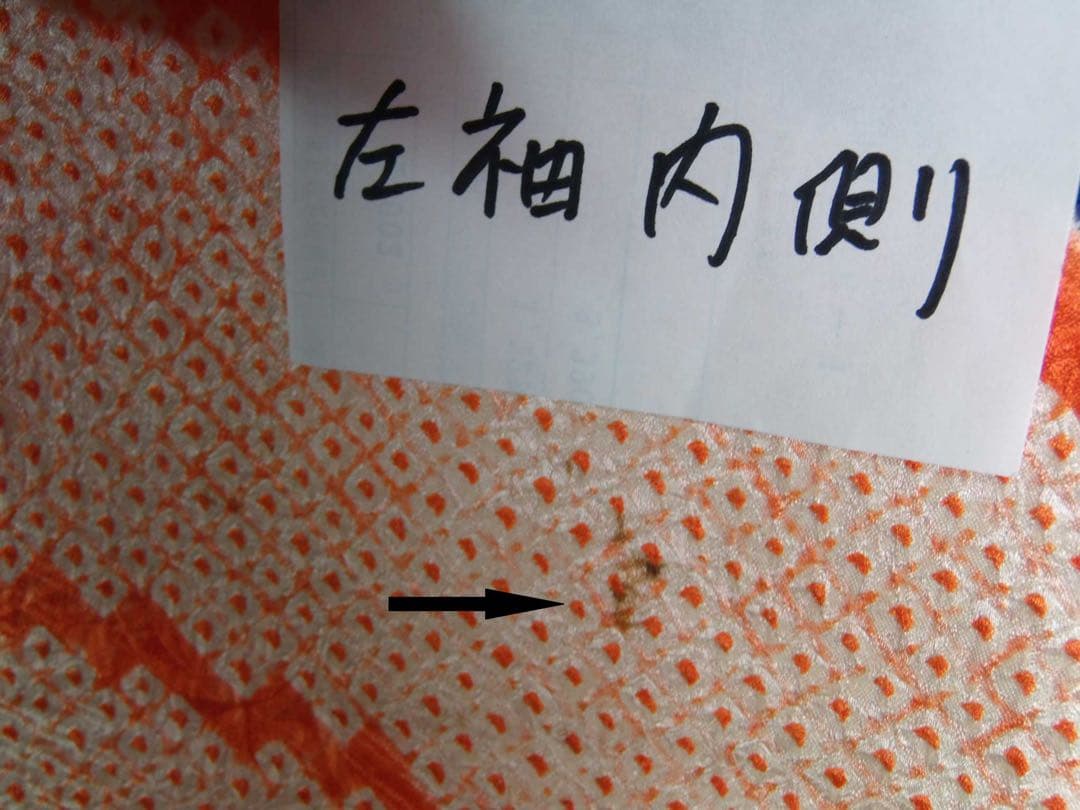 左袖内側